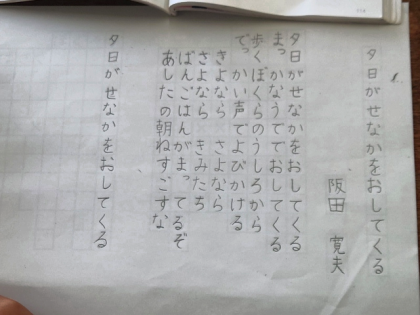 夕日がせなかをおしてくる
阪田 寛夫
夕日がせなかをおしてくる
まっかなうででおしてくる
歩くぼくらのうしろから
でっかい声でよびかける
さよなら さよなら
さよなら きみたち
ばんごはんがまってるぞ
あしたの朝ねすごすな
夕日がせなかをおしてくる